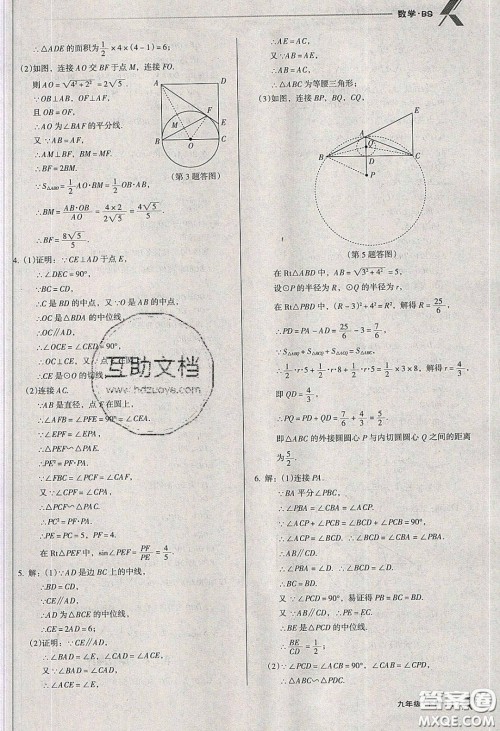 数学·BS
∴△ADE的面积为1/2×4×(4-1)=6;
(2)如图,连接AO交BF于点M,连接FO.
则AO=√(4²+2²)=2√5.
∵OB⊥AB,OF⊥AF,
且OB=OF,
∴AO为∠BAF的平分线.
又∵AB=AF,
∴AM⊥BF,BM=MF.
∴BF=2BM.
∵S△ABO=1/2AO·BM=1/2OB·AB,
∴BM=AB·OB/AO=4×2/2√5=4√5/5.
∴BF=8√5/5.
A
D
E
F
M
B
O
C
(第3题答图)
4. (1)证明:∵CE⊥AD于点E,
∴∠DEC=90°,
∵BC=CD,
∴C是BD的中点,又∵O是AB的中点,
∴OC是△BDA的中位线,
∴OC∥AD,
∴∠OCE=∠CED=90°,
∴OC⊥CE,又∵点C在圆上,
∴CE是⊙O的切线.
(2)连接AC.
∵AB是直径,点F在圆上,
∴∠AFB=∠PFE=90°=∠CEA.
∵∠EPF=∠EPA,
∴△PEF∽△PAE.
∴PE²=PF·PA.
∵△PCF∽△PAC,
∴PC²=PF·PA.
∴PE=PC=5,PF=4.
在Rt△PEF中,sin∠PEF=PF/PE=4/5.
5. 解:(1)∵AD是边BC上的中线,
∴BD=CD,
∵CE∥AD,
∴AD为△BCE的中位线,
∴CE=2AD=6;
(2)证明:∵CE∥AD,
∴∠BAD=∠E,∠CAD=∠ACE.
又∵∠BAD=∠CAD,
∴∠ACE=∠E.
∴AE=AC,
又∵AB=AE,
∴AB=AC,
∴△ABC为等腰三角形;
(3)如图,连接BP,BQ,CQ,
E
A
Q
B
D
C
P
(第5题答图)
在Rt△ABD中,AB=√(3²+4²)=5,
设⊙P的半径为R,⊙Q的半径为r,
在Rt△PBD中,(R-3)²+4²=R²,解得R=25/6,
∴PD=PA-AD=25/6-3=7/6,
∵S△ABQ+S△BCQ+S△ACQ=S△ABC,
∴1/2·r·5+1/2·r·8+1/2·r·5=1/2×3×8,解得r=4/3,
即QD=4/3,
∴PQ=PD+QD=7/6+4/3=5/2.
即△ABC的外接圆圆心P与内切圆圆心Q之间的距离
为5/2.
6. 解:(1)连接PA.
∵BA平分∠PBC,
∴∠PBA=∠CBA=∠ACP.
又∵∠ACP+∠BCD=∠BCD+∠PCB=90°,
∴∠ACP=∠BCD.∴∠CBA=∠BCD.
∴∠ACD=∠PCB.
又∵∠PCD=90°,易得证PD=PC.
又∵PE⊥CD,∴DE=EC.
∴BE是△PCD的中位线,
∴BE/CD=1/2;
(2)∵∠PCD=∠ACB=90°,∠CAB=∠CPB,
∴△ACB∽△PCD.
互助文档
www.hdzuoye.com
九年级
答案圈
MXQE.COM